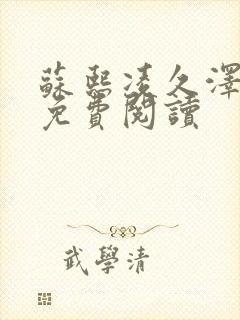 蘇熙凌久澤
免費閱讀
武學清